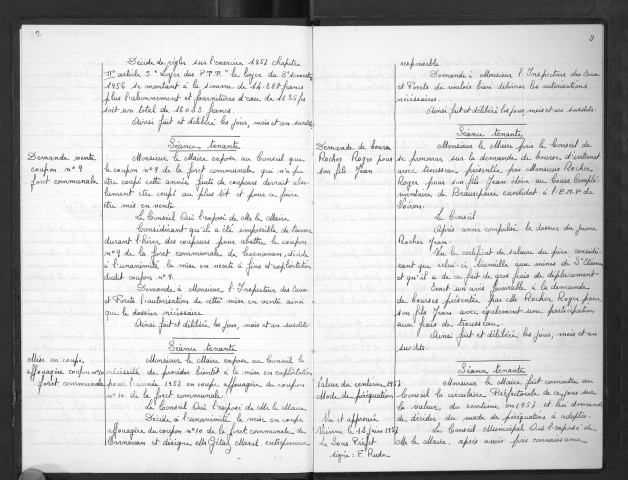 2
Décide de régler sur l'exercice 1957 chapitre
II article 5 "Loyer des P.T.T." le loyer du 3e
1956 se montant à la somme de 14.388 francs
plus l'abonnement et fournitures d'eau de 1635 frs
soit un total de 16023 francs.
Ainsi fait et délibéré les jour, mois et an susdits
Séance tenante
Demande vente
coupon n°9
foret communale
Monsieur le Maire expose au Conseil que
le coupon n°9 de la foret communale qui n'a pu
être coupé cette année faute de coupeurs devrait
être coupé au plus tôt et pour ce faire
être mis en vente
Le Conseil Oui l'exposé de Mr le Maire
Considérant qu'il a été impossible de trouver
durant l'hiver des coupeurs pour abattre le coupon
n°9 de la foret communale de Carnavan, décide
à l'unanimité la mise en vente à fins d'exploitation
dudit coupon n°9.
Demande à Monsieur l'Inspecteur des Eaux
et Forêts l'autorisation de cette mise en vente ainsi
que le dossier nécessaire
Ainsi fait et délibéré les jour, mois et an susdits
Séance tenante
Mise en coupe
affouagère coupon n°10
foret communale
Monsieur le Maire expose au Conseil la
nécessité de procéder bientôt à la mise en exploitation
pour l'année 1957 en coupe affouagère du coupon
n°10 de la foret communale.
Le Conseil Oui l'exposé de Mr le Maire
Décide à l'unanimité la mise en coupe
affouagère du coupon n°10 de la foret communale de
Carnavan et désigne Mr Marel entrepreneur
3
responsable
Demande à Monsieur l'Inspecteur des Eaux
et Forets de vouloir bien délivrer les autorisations
nécessaires.
Ainsi fait et délibéré les jour, mois et an susdits
Séance tenante
Demande de bourse
Rocher Roger pour
son fils Jean
Monsieur le Maire prie le Conseil de
se prononcer sur la demande de bourse d'internat
avec trousseau présentée par Monsieur Rocher
Roger pour son fils Jean élève au Cours Complé-
mentaire de Beaurepaire candidat à l'E.N.P de
Voiron.
Le Conseil
Après avoir compulsé le dossier du jeune
Rocher Jean
Vu le certificat de salaire du père considé-
rant que celui-ci travaille aux mines de St Etienne
et qu'il a de ce fait de gros frais de déplacement
Emet un avis favorable à la demande
de bourse présentée par Mr Rocher Roger pour
son fils Jean avec également une participation
aux frais de trousseau.
Ainsi fait et délibéré les jour, mois et an
susdits.
Séance tenante
Valeur du centime 1957
Mode de péréquation
Monsieur le Maire fait connaître au
Conseil la circulaire Préfectorale de ce jour sur
la valeur du centime en 1957 et lui demande
de décider du mode de péréquation à adopter.
Le Conseil Municipal Oui l'exposé de
Mr le Maire, après avoir pris connaissance
Vu et approuvé
Vienne le 13 juin 1957
Le Sous Préfet
signé : F.